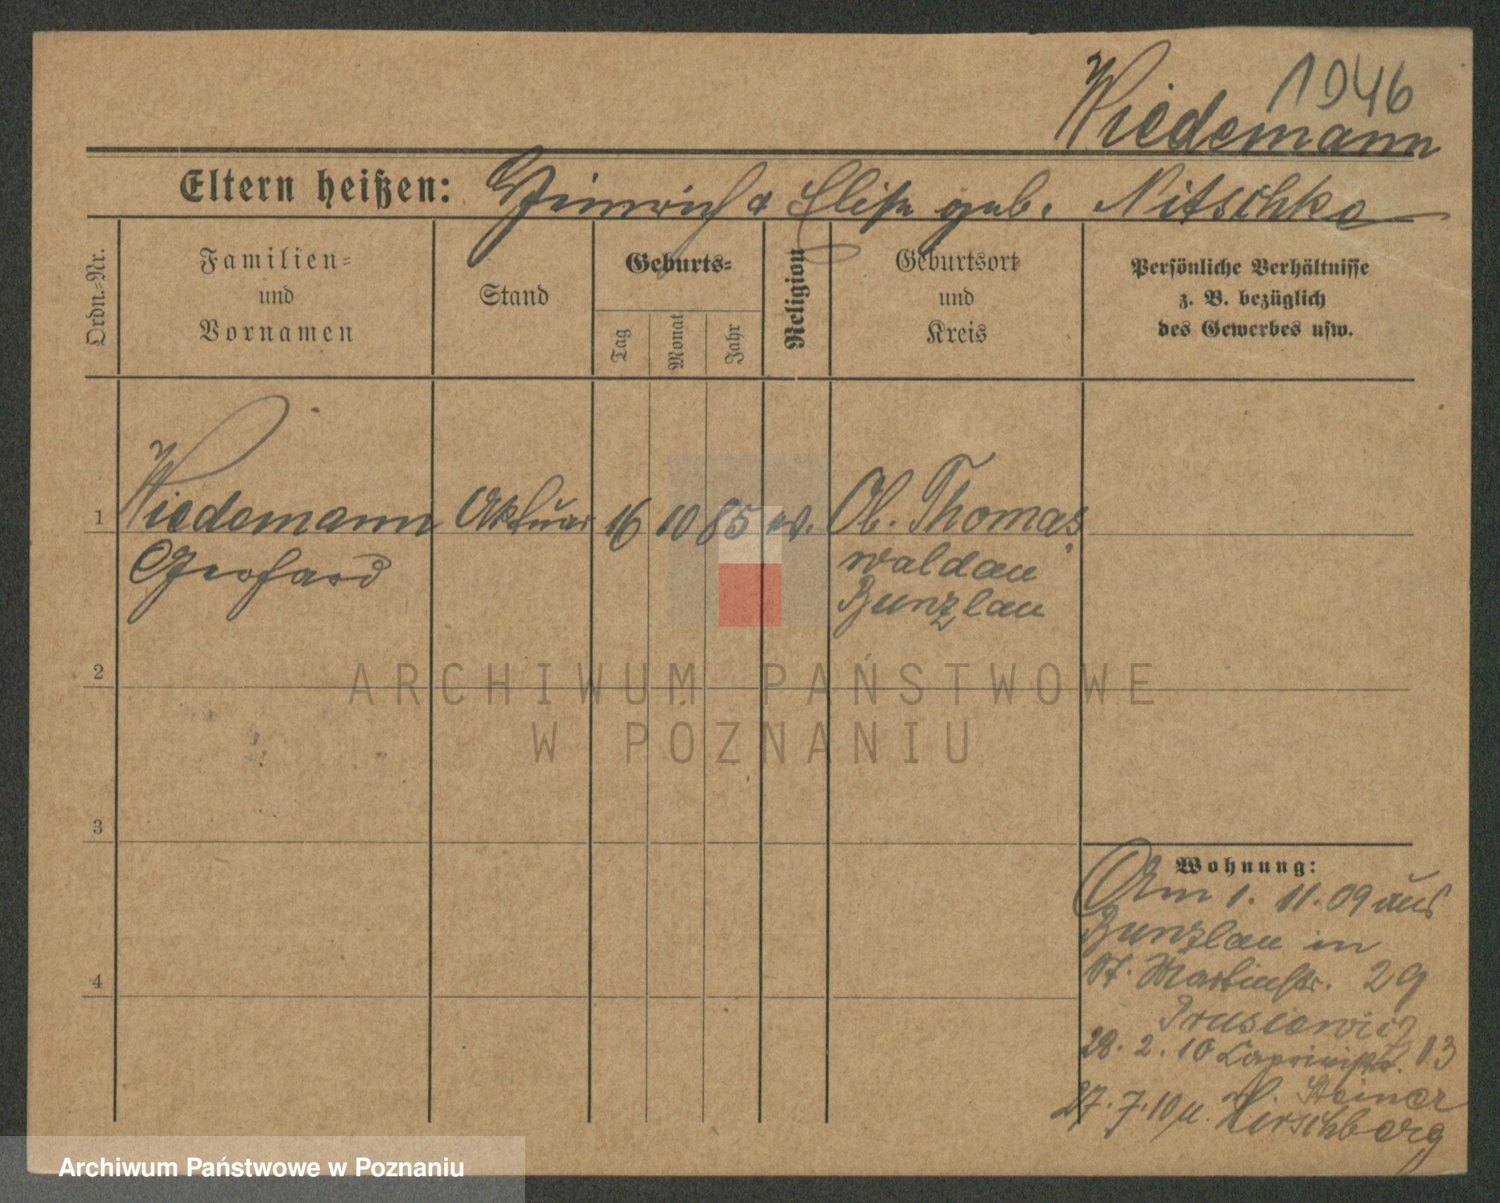 1946
Wiedemann
Eltern heißen: Heinrich & Elise geb. Nitschke
Ordn.-Nr.
Familien-
und
Vornamen
Stand
Geburts-
Tag
Monat
Jahr
Religion
Geburtsort
und
Kreis
Persönliche Verhältnisse
z. B. bezüglich
des Gewerbes usw.
1 Wiedemann Aktuar 16 10 85 ev. Ob. Thomas
Gerhard
waldau
Bunzlau
2
3
4
Wohnung:
Am 1. 11. 09 aus
Bunzlau in
St. Martinstr. 29
Prusiewicz
28. 2. 10 Caprivistr. 13
Steiner
27. 7. 10 n. Hirschberg
ARCHIWUM PAŃSTWOWE
W POZNANIU
Archiwum Państwowe w Poznaniu